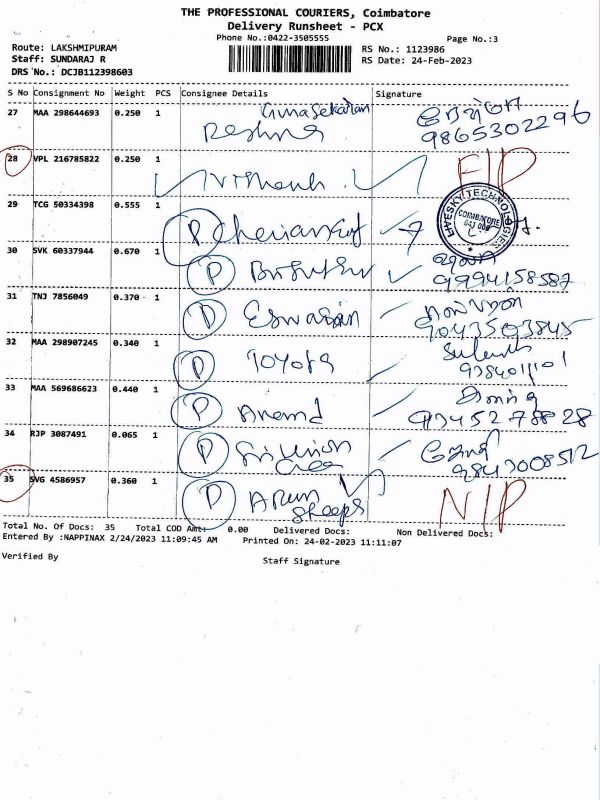 THE PROFESSIONAL COURIERS, Coimbatore
Delivery Runsheet - PCX
Phone No.:0422-3505555
Page No.:3
Route: LAKSHMIPURAM
Staff: SUNDARAJ R
DRS No.: DCJB112398603
RS No.: 1123986
RS Date: 24-Feb-2023
S No Consignment No Weight PCS Consignee Details Signature
27 MAA 298644693 0.250 1 Gunasekaran
Reshma
9865302296
28 VPL 216785822 0.250 1
29 TCG 50334398 0.555 1 P
LIVESKY TECHNOLOGIES
COIMBATORE
30 SVK 60337944 0.670 1 P
9994158587
31 TNJ 7856049 0.370 1 D Eswaran
9043503845
32 MAA 298907245 0.340 1 D Toyota
33 MAA 569686623 0.440 1 P Anand
34 RJP 3087491 0.065 1 D
9843008512
35 SVG 4586957 0.360 1 D Arun
N/P
Total No. Of Docs: 35 Total COD Amt: 0.00 Delivered Docs: Non Delivered Docs:
Entered By :NAPPINAX 2/24/2023 11:09:45 AM Printed On: 24-02-2023 11:11:07
Verified By
Staff Signature